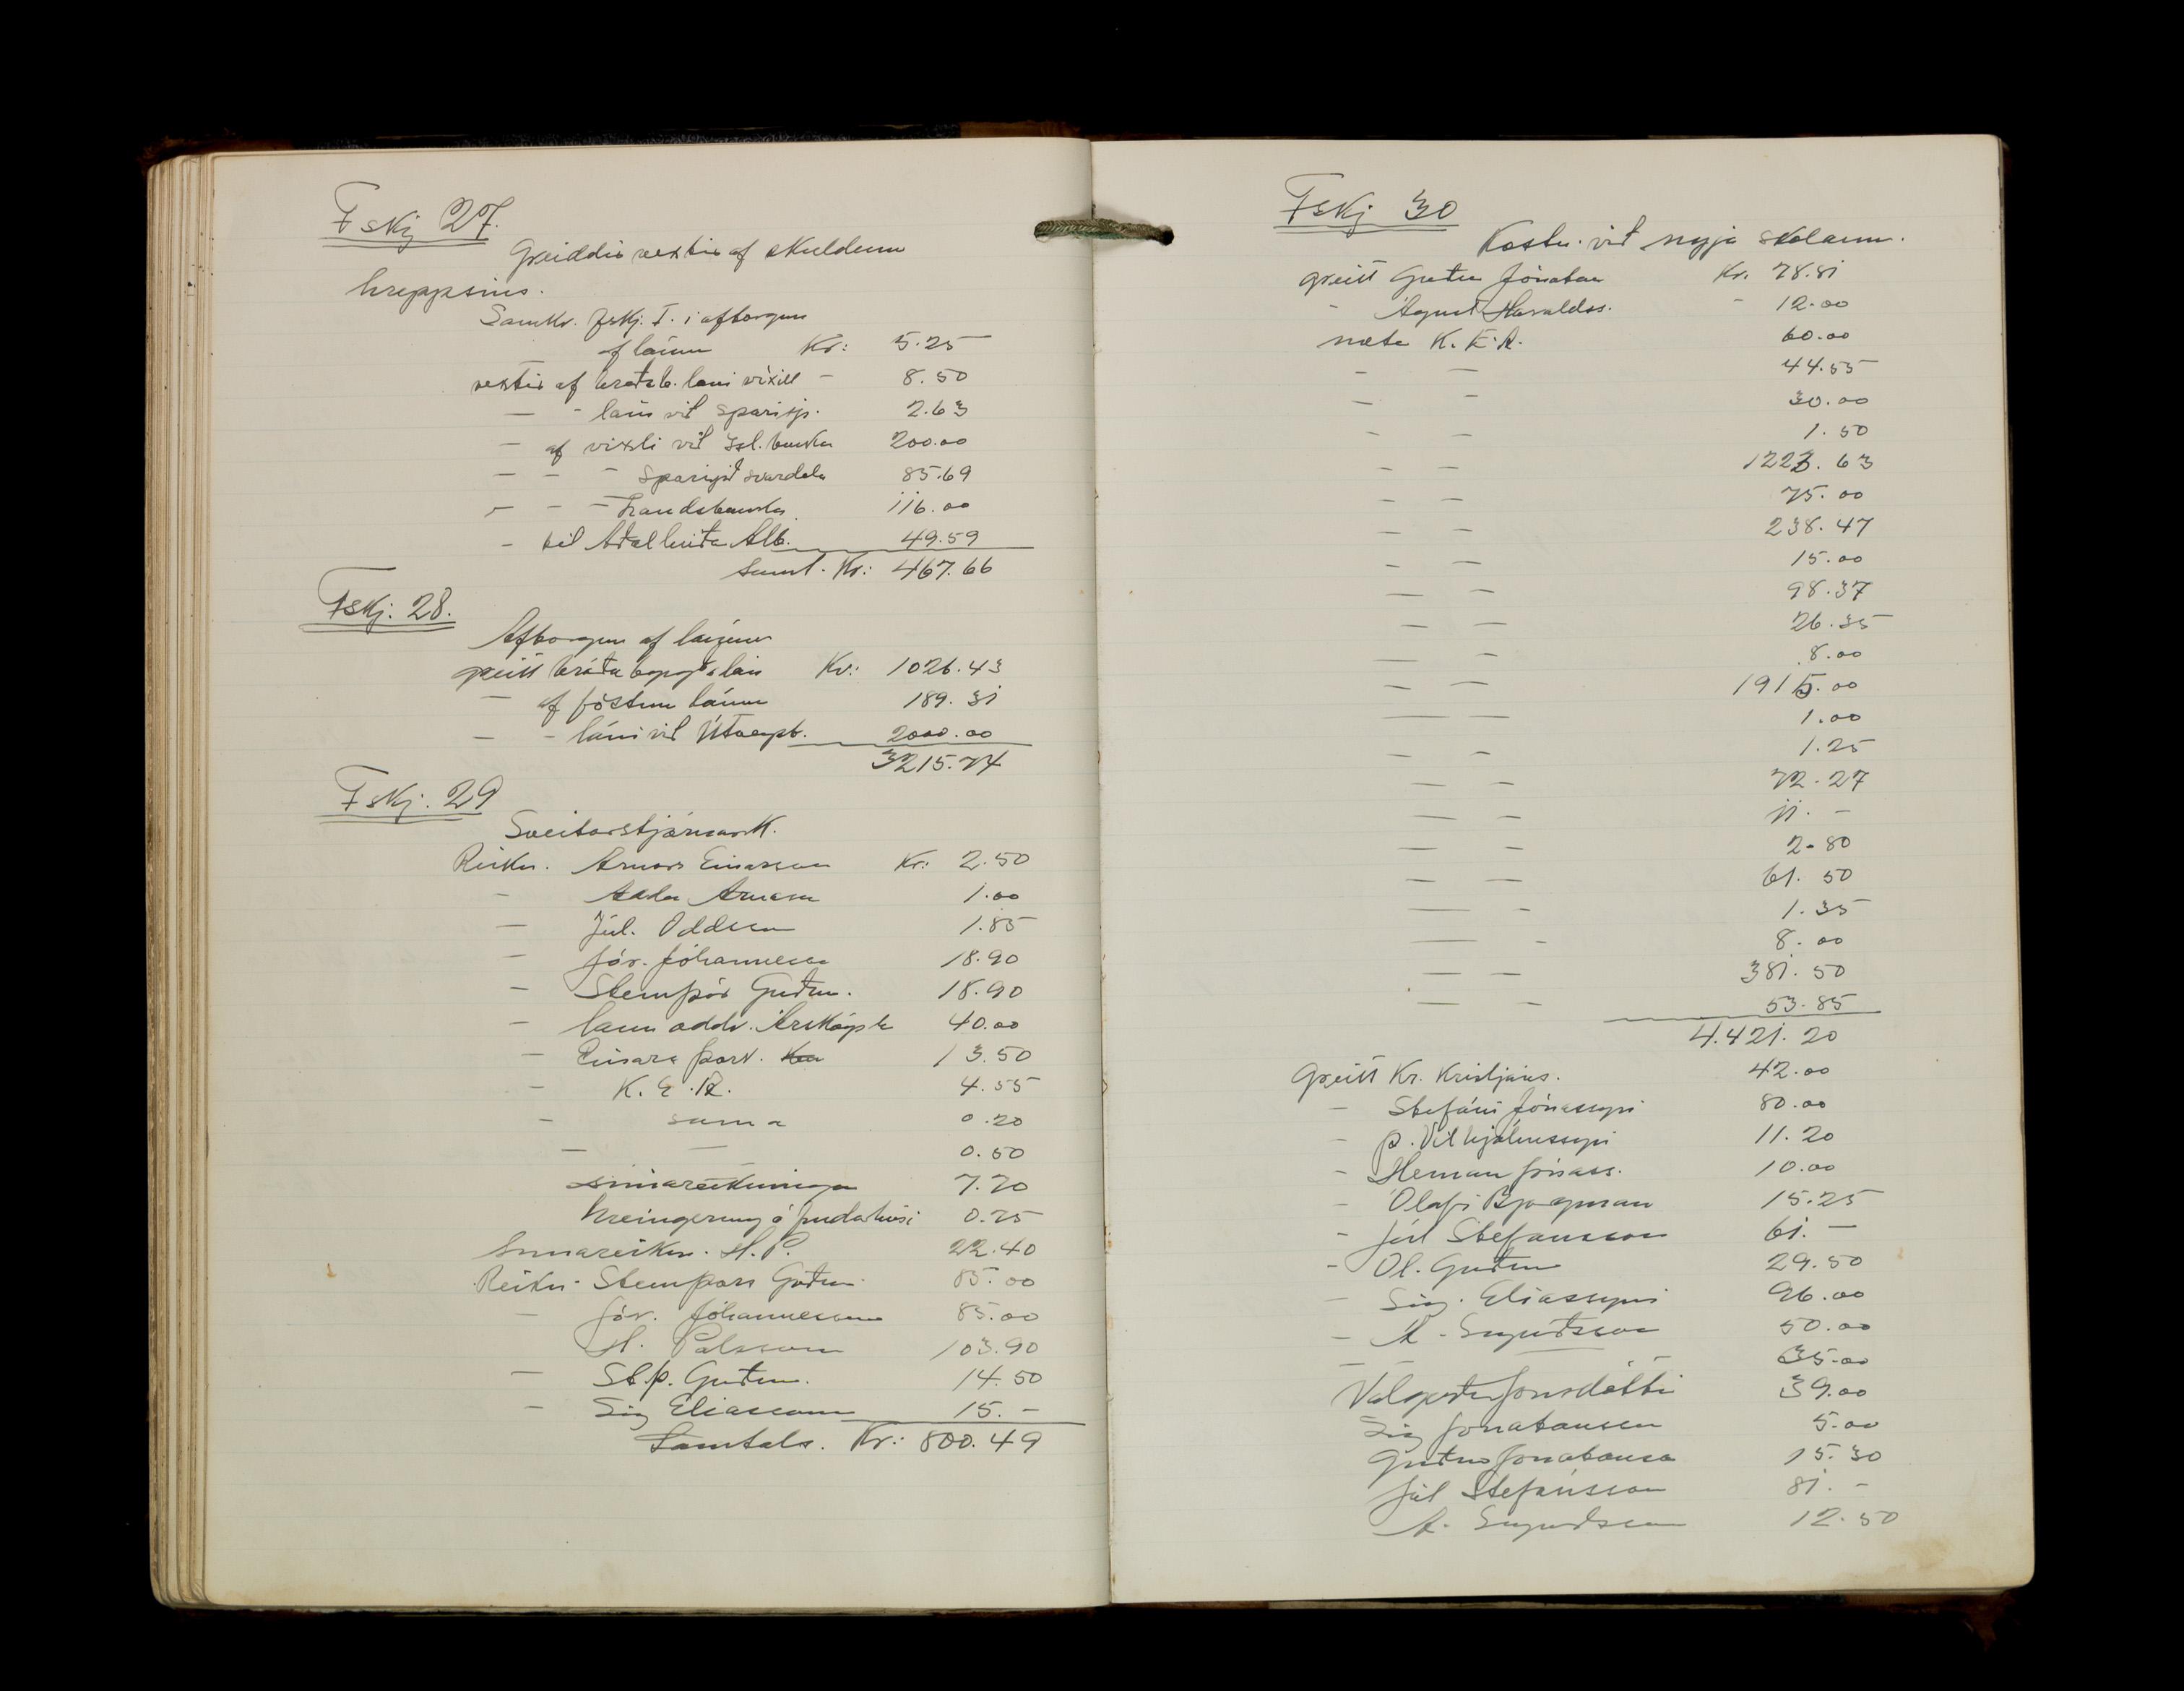 Fskj 27.
Greiddir vextir af skuldum
hreppsins.
Samkv. fskj. I. i afborgun
af lánum Kr: 5.25
vextir af bráðab. láni víxill - 8.50
— - láni við sparisj. 2.63
— af víxli við Ísl. banka 200.00
— — — Sparisjóð Svarfdæla 85.69
— — — Landsbanka 116.00
— til Aðalheiðar Alb. 49.59
Samt. Kr: 467.66
Fskj. 28.
Afborgun af lánum
greitt bráðabyrgðalán Kr: 1026.43
— af föstum lánum 189.31
— - láni við 2000.00
3215.74
Fskj. 29
Sveitarstjórnark.
Reikn. Arnórs Einarsson Kr: 2.50
- Arnason 1.00
— Júl. Oddsson 1.85
— Jór. Jóhannesson 18.90
— Steinþór Guðm. 18.90
— laun oddv. 40.00
— Einars Þorv. 13.50
- K.E.A. 4.55
- sama 0.20
— — 0.50
símareikninga 7.20
hreingerning á fundarhúsi 0.75
Símareikn. H.P. 22.40
Reikn. Steinþórs Guðm. 85.00
— Jór. Jóhannesson 85.00
H. Pálsson 103.90
— St.þ. Guðm. 14.50
— Sig Elíasson 15.-
Samtals. Kr: 800.49
Fskj 30
Kostn. við nýja skólann.
greitt Guðm Jónatan Kr. 78.81
- Ágúst Haraldss. - 12.00
nóta K.E.A. 60.00
- — 44.55
— - 30.00
- — 1.50
- — 1223.63
- — 75.00
— — 238.47
- — 15.00
— — 98.37
— — 26.35
— - 8.00
— — 1915.00
— — 1.00
— - 1.25
— — 72.27
— — 11.-
— - 2.80
— — 61.50
— - 1.35
— - 8.00
— — 381.50
— - 53.85
4.421.20
Greitt Kr. Kristjáns. 42.00
— Stefáni Jónassyni 80.00
- Þ. Vilhjálmssyni 11.20
- Herman Jónass. 10.00
- Ólafi Bergman 15.25
- Júl Stefánsson 61.—
- Ól. Guðm 29.50
— Sig. Elíassyni 96.00
— A. Sigurðsson 50.00
— — — 35.00
Valgerður Jónsdóttir 39.00
Sig Jónatansson 5.00
Guðm Jónatanss 15.30
Júl Stefánsson 81.-
A. Sigurðsson 12.50